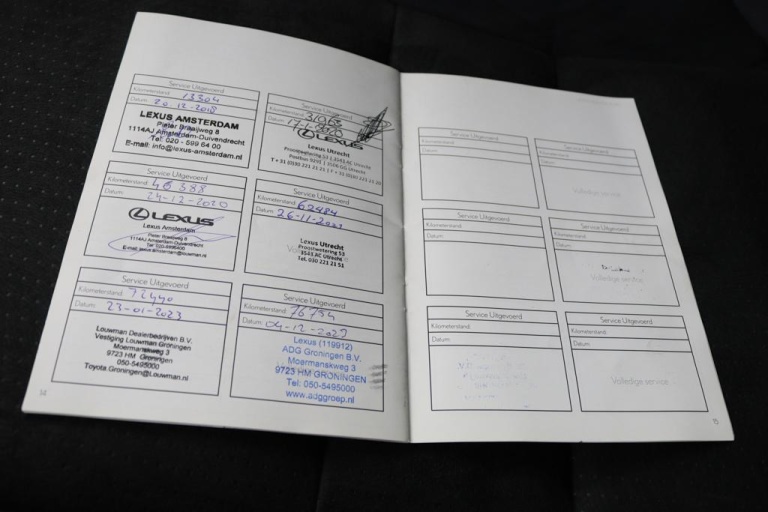 Service Uitgevoerd
Kilometerstand: 13304
Datum: 20-12-2018
LEXUS AMSTERDAM
Pieter Braaijweg 8
1114AJ Amsterdam-Duivendrecht
Tel: 020 - 599 64 00
E-mail: info@lexus-amsterdam.nl
Service Uitgevoerd
Kilometerstand:
Datum: 17-1-2020
LEXUS
Lexus Utrecht
Proostwetering 53 | 3543 AC Utrecht
T + 31 (0)30 221 21 21
Service Uitgevoerd
Kilometerstand: 46388
Datum: 24-12-2020
LEXUS
Lexus Amsterdam
Pieter Braaijweg 8
1114AJ Amsterdam-Duivendrecht
Service Uitgevoerd
Kilometerstand: 62484
Datum: 26-11-2021
Lexus Utrecht
Proostwetering 53
3543 AC Utrecht
Tel. 030 221 21 51
Service Uitgevoerd
Kilometerstand: 72440
Datum: 23-01-2023
Louwman Dealerbedrijven B.V.
Vestiging Louwman Groningen
Moermanskweg 3
9723 HM Groningen
050-5495000
Toyota.Groningen@Louwman.nl
Service Uitgevoerd
Kilometerstand: 76754
Datum: 04-12-2023
Lexus (119912)
ADG Groningen B.V.
Moermanskweg 3
9723 HM GRONINGEN
Tel: 050-5495000
www.adggroep.nl
14
Service Uitgevoerd
Kilometerstand:
Datum:
Service Uitgevoerd
Kilometerstand:
Datum:
Volledige service
Service Uitgevoerd
Kilometerstand:
Datum:
Service Uitgevoerd
Kilometerstand:
Datum:
Volledige service
Service Uitgevoerd
Kilometerstand:
Datum:
Service Uitgevoerd
Kilometerstand:
Datum:
Volledige service
15